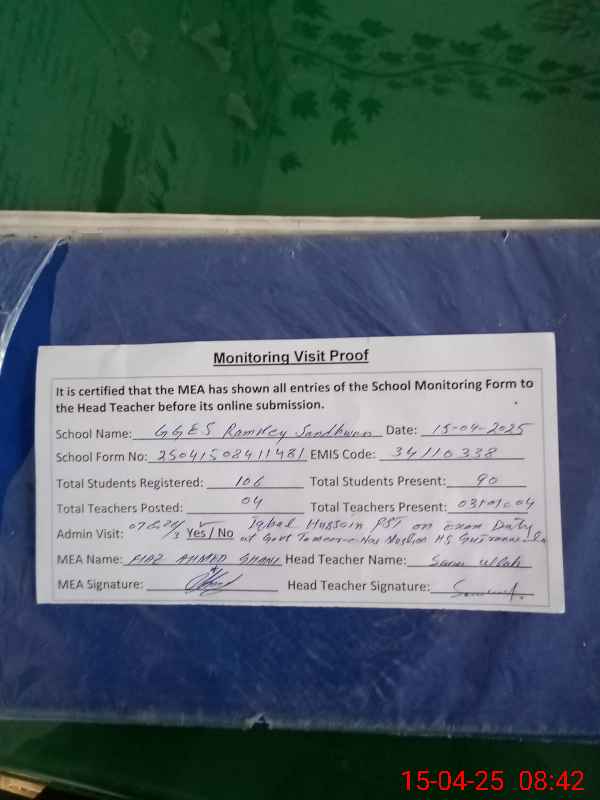 Monitoring Visit Proof
It is certified that the MEA has shown all entries of the School Monitoring Form to
the Head Teacher before its online submission.
School Name: GGES Ramkey Sandhwan Date: 15-04-2025
School Form No: 25041508411481 EMIS Code: 34110338
Total Students Registered: 106 Total Students Present: 90
Total Teachers Posted: 04 Total Teachers Present: 03+01=04
Admin Visit: Yes / No Iqbal Hussain PST on Exam Duty
at Govt HS
MEA Name: FIAZ AHMED GHANI Head Teacher Name: Ullah
MEA Signature: Head Teacher Signature:
15-04-25 08:42